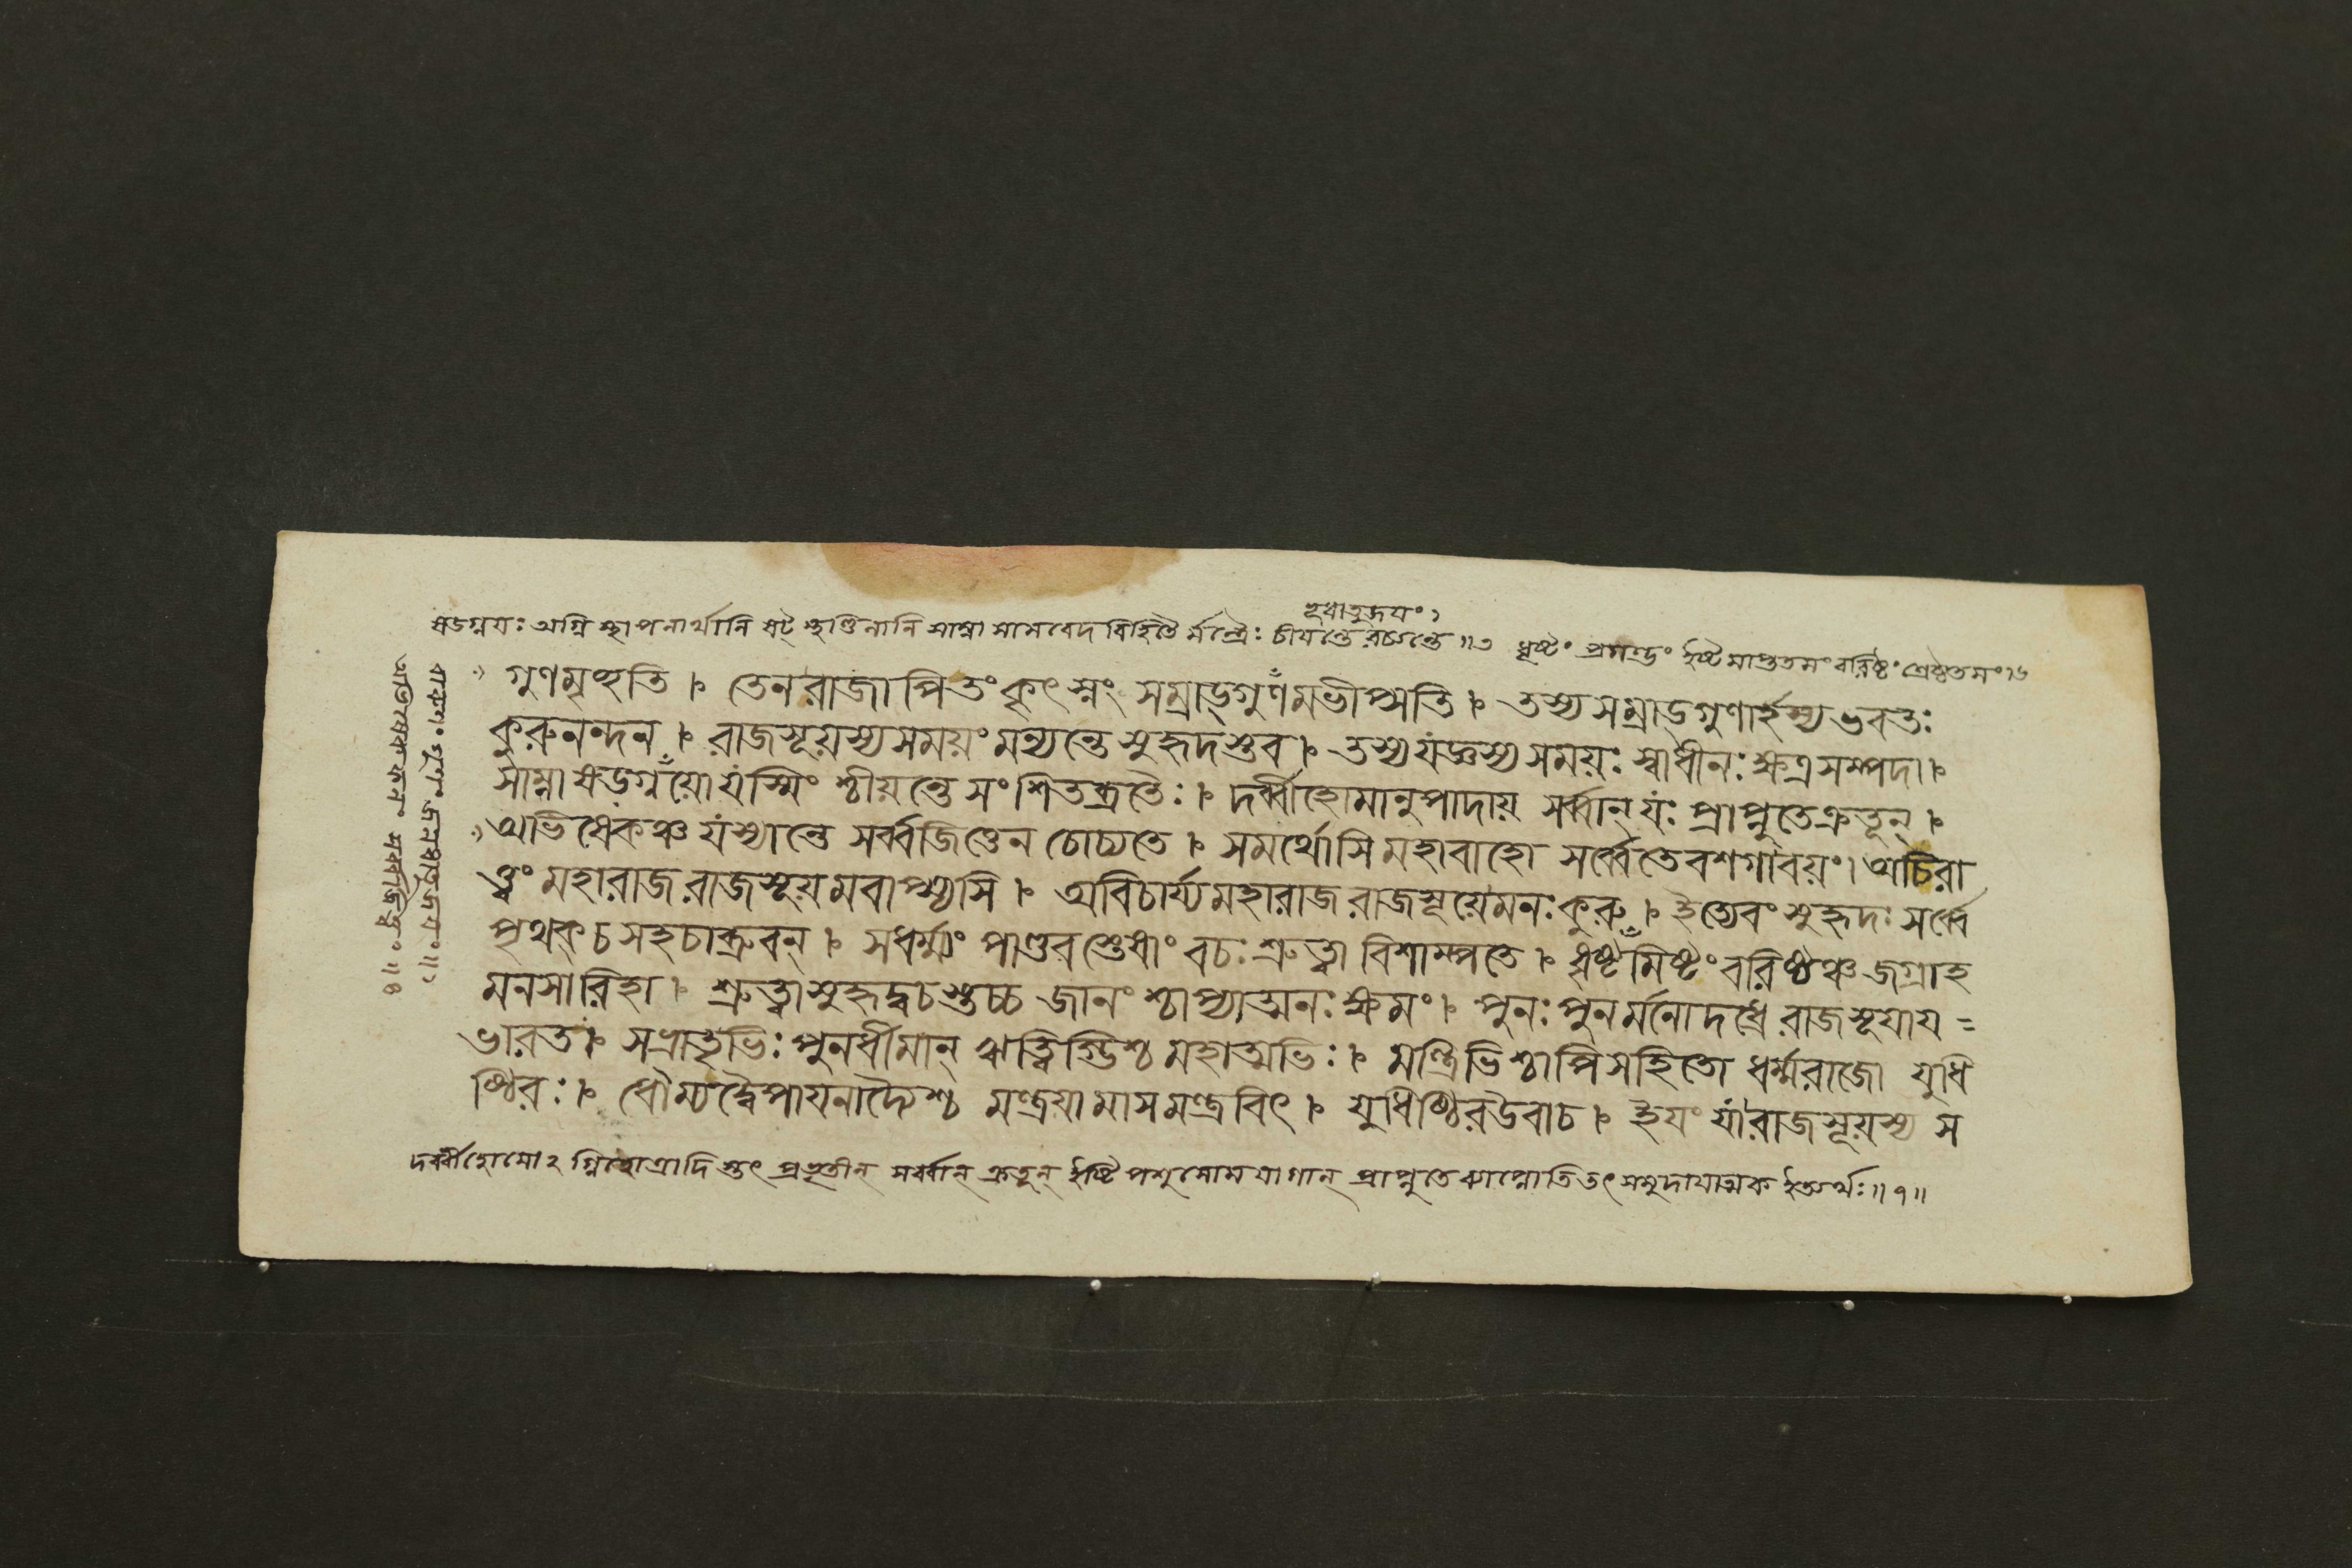 হূয়াত্রূয়ং১
ষডগ্নয়ঃ অগ্নি স্থাপনার্থানি ষট্ স্থণ্ডিলানি সাম্না সামবেদ বিহিতৈ র্মন্ত্রৈঃ চীয়ন্তে রচ্যন্তে ॥৩ ধৃষ্টং প্রগল্ভং ইষ্টমাপ্ততমং বরিষ্ঠং শ্রেষ্ঠতমং১৬
গুণমৃচ্ছতি । তেনরাজাপিতংকৃৎস্নং সম্রাড্গুণমভীপ্সতি । তস্যসম্রাড্গুণার্হস্যভবতঃ
কুরুনন্দন । রাজসূয়স্যসময়ংমন্যন্তেসুহৃদস্তব । তস্যযজ্ঞস্যসময়ঃ স্বাধীনঃক্ষত্রসম্পদা।
সাম্নাষড়গ্নয়োযস্মিং শ্চীয়ন্তেসংশিতব্রতৈঃ । দর্ব্বীহোমানুপাদায় সর্ব্বান্যঃ প্রাপ্নুতেক্রতূন্ ।
অভিষেকঞ্চযস্যান্তে সর্ব্বজিত্তেন চোচ্যতে । সমর্থোসিমহাবাহো সর্ব্বেতেবশগাবয়ং। অচিরা
ত্ত্বং মহারাজরাজসূয়মবাপ্স্যসি । অবিচার্য্যমহারাজ রাজসূয়েমনঃকুরু । ইত্যেবংসুহৃদঃ সর্ব্বে
পৃথক্ চ সহচাব্রুবন্ । সধর্ম্ম্যং পাণ্ডবস্তেষাং বচঃশ্রুত্বা বিশাম্পতে । ধৃষ্টমিষ্টংবরিষ্ঠঞ্চজগ্রাহ
মনসারিহা । শ্রুত্বাসুহৃদ্বচস্তচ্চ জানংশ্চাপ্যাত্মনঃক্ষমং । পুনঃপুনর্মনোদধ্রে রাজসূয়ায়=
ভারত। সভ্রাতৃভিঃপুনর্ধীমান্ ঋত্বিগ্ভিশ্চমহাত্মভিঃ । মন্ত্রিভিশ্চাপিসহিতো ধর্ম্মরাজো যুধি
ষ্ঠিরঃ । ধৌম্যদ্বৈপায়নাদ্যৈশ্চ মন্ত্রয়ামাসমন্ত্রবিৎ । যুধিষ্ঠিরউবাচ । ইয়ং যারাজসূয়স্য স
দর্ব্বীহোমোঽগ্নিহোত্রাদি স্তৎ প্রভৃতীন্ সর্ব্বান্ ক্রতূন্ ইষ্টিপশুসোমযাগান্ প্রাপ্নুতে প্রাপ্নোতি তৎসমুদায়াত্মক ইত্যর্থঃ॥৭॥